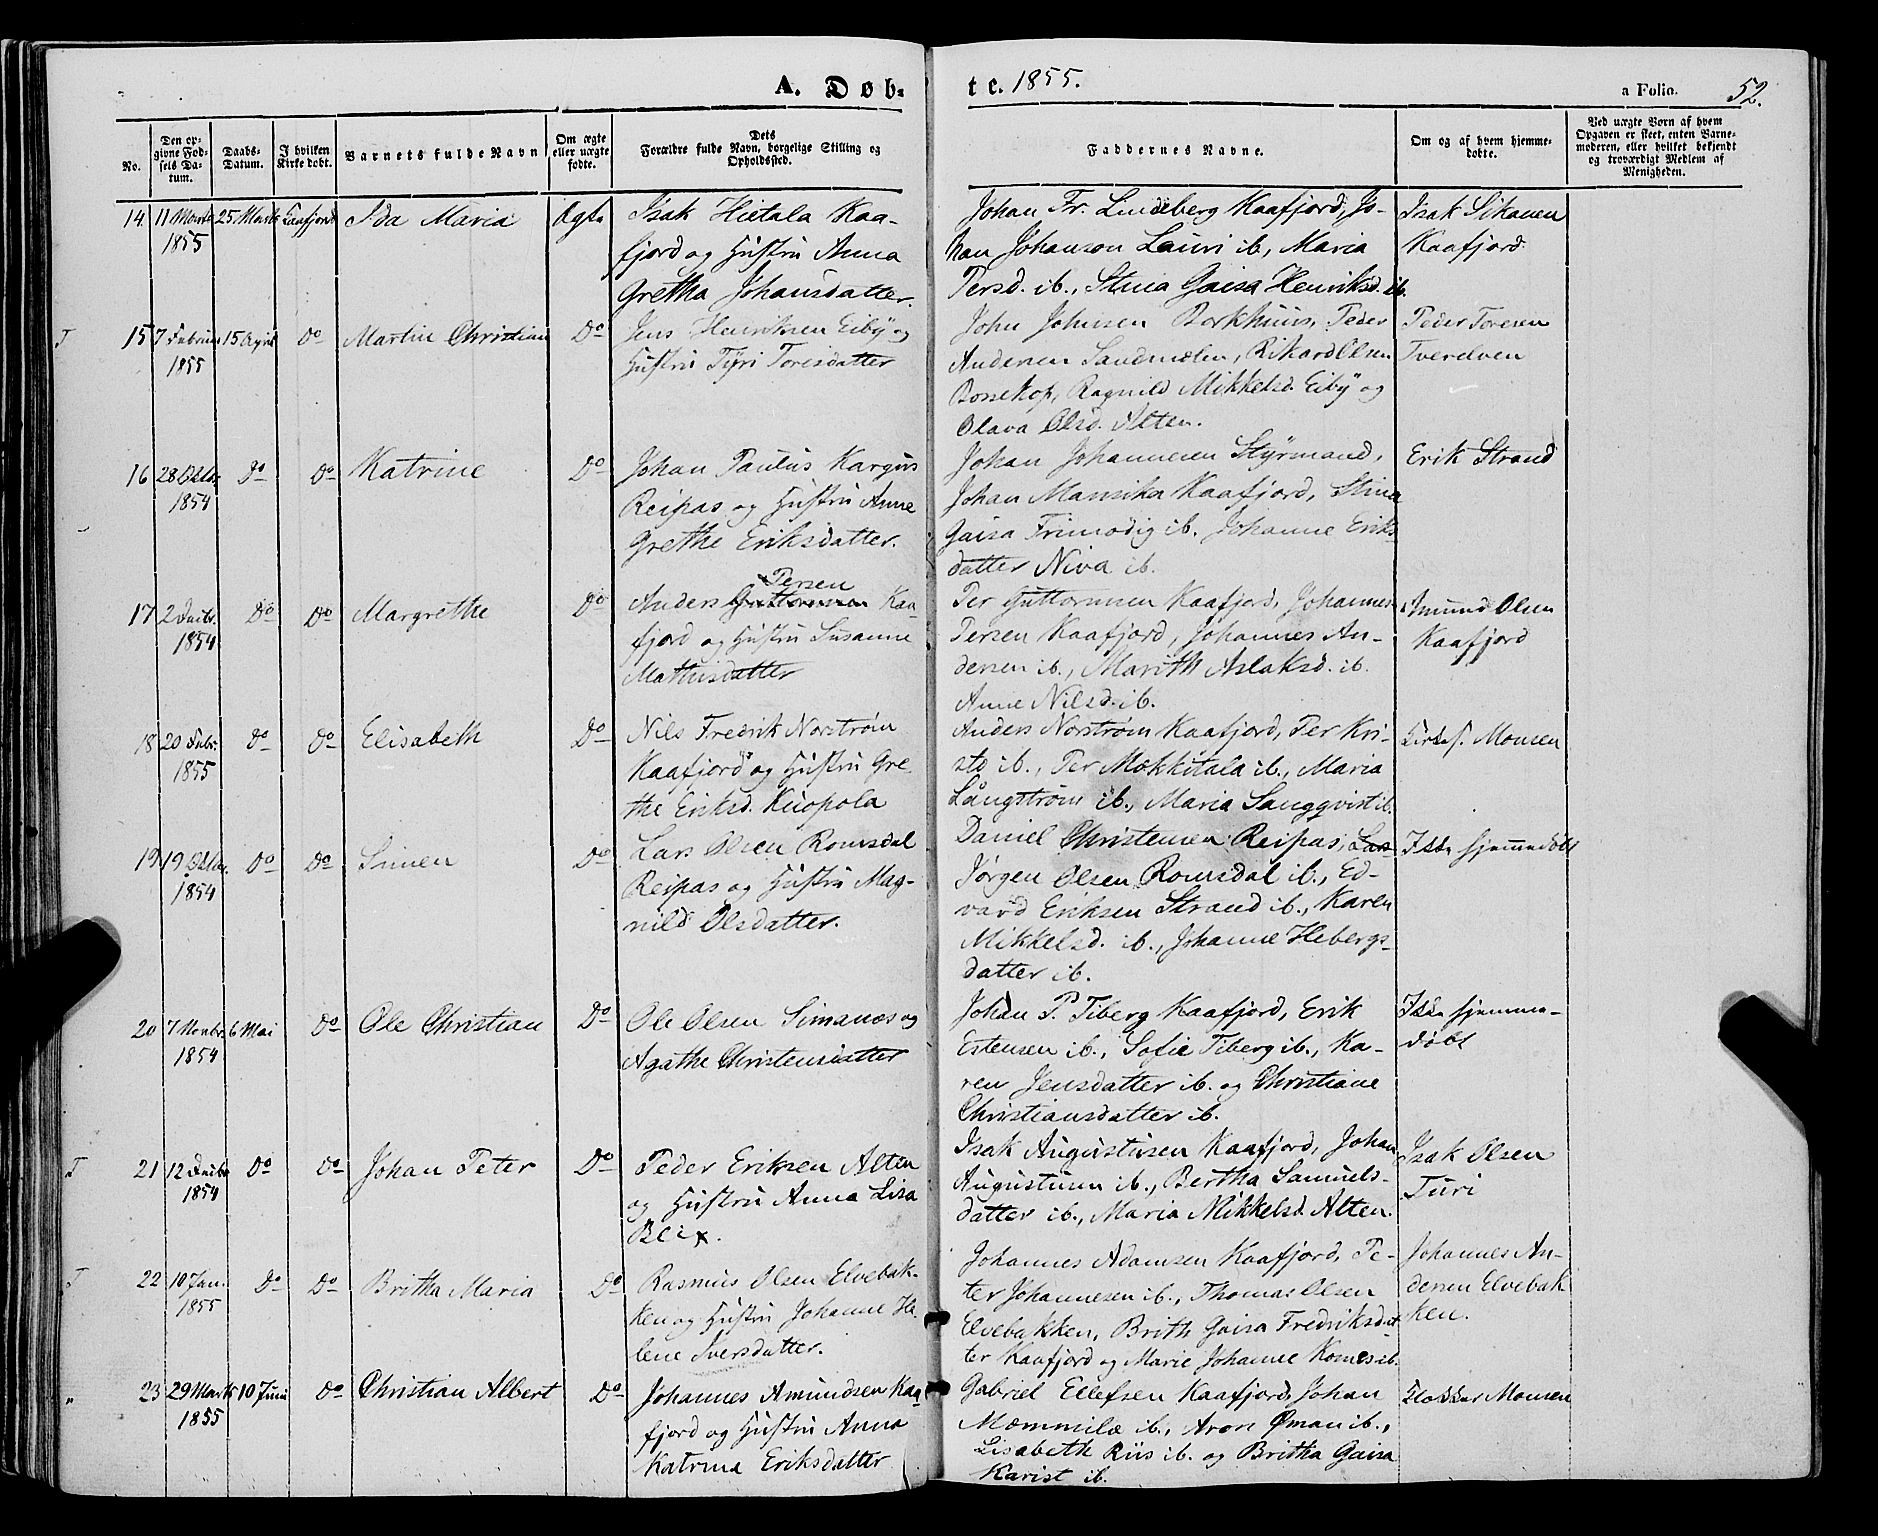 A. Døb-
te. 1855.
a Folio. 52.
No.
Den op-
givne Fød-
sels Da-
tum.
Daabs-
Datum.
I hvilken
Kirke døbt.
Barnets fulde Navn
Om ægte
eller uægte
fødte.
Dets
Forældre fulde Navn, borgelige Stilling og
Opholdssted.
Faddernes Navne.
Om og af hvem hjemme-
døbte.
Ved uægte Børn af hvem
Opgaven er skeet, enten Barne-
moderen, eller hvilket bekjendt
og troværdigt Medlem af
Menigheden.
14. 11 Marts 25 Marts Kaafjord Ida Maria Ægte Isak Hietala Kaa-
1855
fjord og Hustru Anna
Gretha Johansdatter.
Johan Fr. Lindeberg Kaafjord, Jo-
han Johanson Lauri ib., Maria
Persd. ib., Stina Gaisa Henriksd. ib.
Isak Sikanen
Kaafjord.
T 15 7 Februar 15 April Do Martin Christian Do Jens Henriksen Eiby og
1855
Hustru Tyri Toresdatter
John Johnsen Borkhuus, Peder
Andersen Sandmælen, Rikard Olsen
Bossekop, Ragnild Mikkelsd. Eiby og
Olava Olsd. Alten.
Peder Toresen
Tverelven
16 28 Oktbr. Do Do Katrine Do Johan Paulus Kargus
1854
Reipas og Hustru Anne
Grethe Eriksdatter.
Johan Johannesen Styrmand,
Johan Mansika Kaafjord, Stina
Gaisa Frimodig ib. Johanne Eriks-
datter Niva ib.
Erik Strand
17 2 Decbr. Do Do Margrethe Do Anders Guttormsen Persen Kaa-
1854
fjord og Hustru Susanne
Mathisdatter
Per Guttormsen Kaafjord, Johannes
Persen Kaafjord, Johannes An-
dersen ib., Marith Aslaksd. ib.
Anne Nilsd. ib.
Amund Olsen
Kaafjord
18 20 Febr. Do Do Elisabeth Do Nils Fredrik Norstrøm
1855
Kaafjord og Hustru Gre-
the Eriksd. Kuopola
Anders Norstrøm Kaafjord, Per Kri-
sto ib., Per Mokkitala ib., Maria
Långstrøm ib., Maria Sangqvist ib.
Kirkes. Monsen
19 19 Oktbr. Do Do Simen Do Lars Olsen Romsdal
1854
Reipas og Hustru Mag-
nild Olsdatter.
Daniel Christensen Reipas, Lars
Jørgen Olsen Romsdal ib., Ed-
vard Eriksen Strand ib., Karen
Mikkelsd. ib., Johanne Hebergs-
datter ib.
Ikke hjemmedøbt
20 7 Novbr. 6 Mai Do Ole Christian Do Ole Olsen Simanæs og
1854
Agathe Christensdatter
Johan P. Tiberg Kaafjord, Erik
Estensen ib., Sofie Tiberg ib., Ka-
ren Jensdatter ib. og Christiane
Christiansdatter ib.
Ikke hjemme-
døbt
T 21 12 Decbr. Do Do Johan Peter Do Peder Eriksen Alten
1854
og Hustru Anna Lisa
Blix.
Isak Augustusen Kaafjord, Johan
Augustusen ib., Bertha Samuels-
datter ib., Maria Mikkelsd. Alten.
Isak Olsen
Turi
T 22 10 Jan. Do Do Britha Maria Do Rasmus Olsen Elvebak-
1855
ken og Hustru Johanne He-
lene Iversdatter.
Johannes Adamsen Kaafjord, Pe-
ter Johannesen ib., Thomas Olsen
Elvebakken, Brith Gaisa Fredriksdat-
ter Kaafjord og Marie Johanne Komes ib.
Johannes An-
dersen Elvebak-
ken.
" 23 29 Marts 10 Juni Do Christian Albert Do Johannes Amundsen Kaa-
1855
fjord og Hustru Anna
Katrina Eriksdatter
Gabriel Ellefsen Kaafjord, Johan
Mæmmilæ ib., Aron Øman ib.,
Lisabeth Riis ib. og Britha Gaisa
Karist ib.
Klokker Monsen